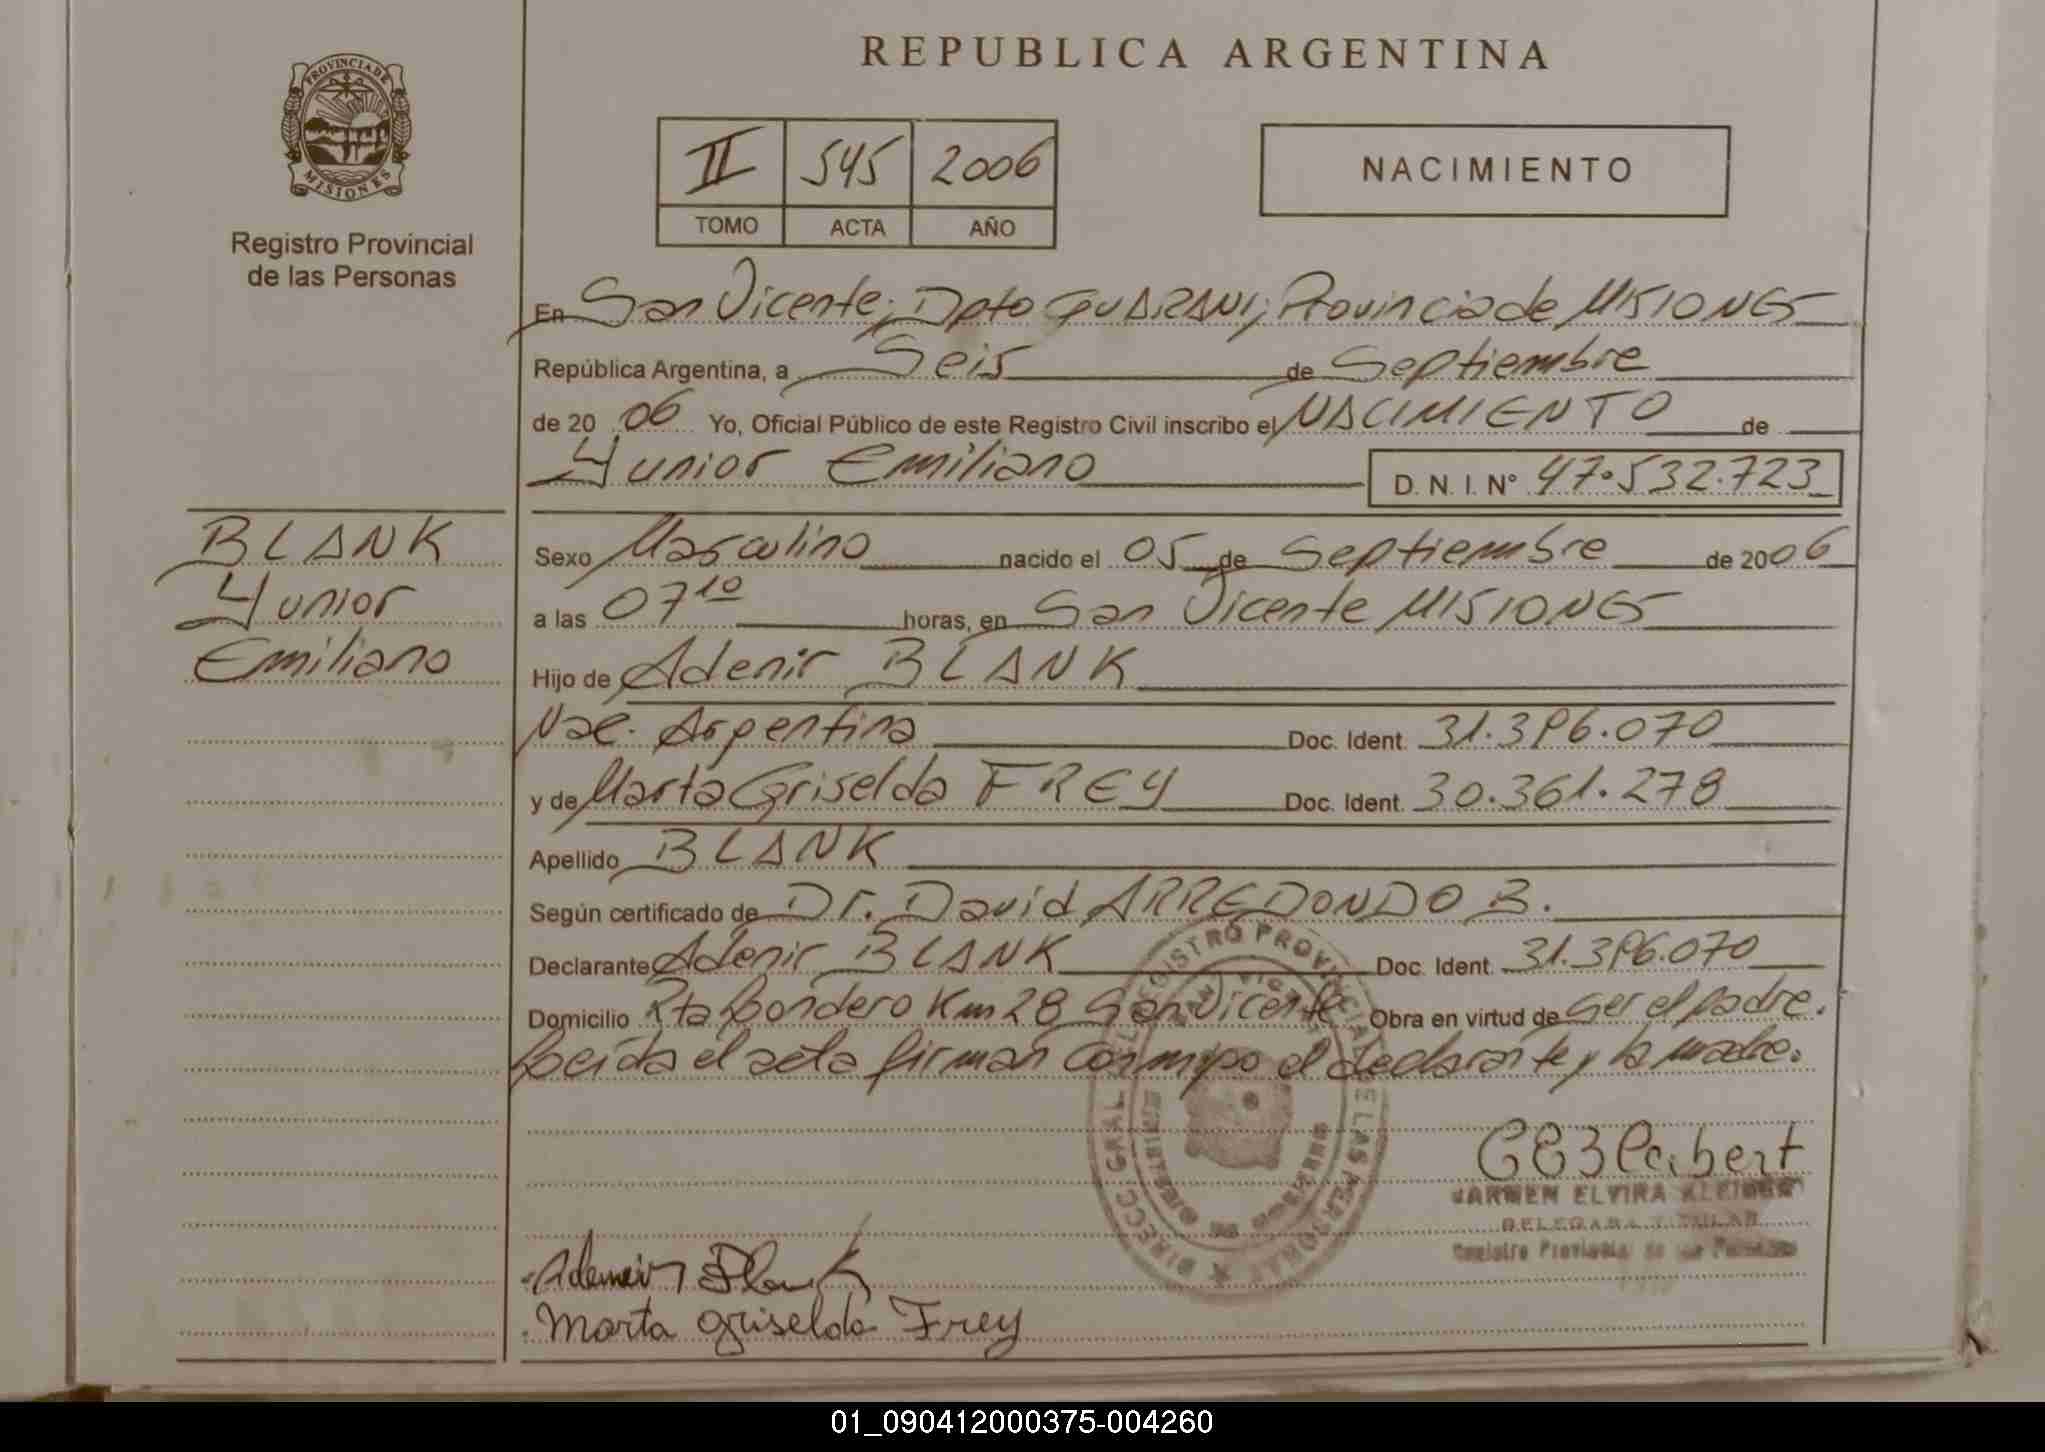 REPUBLICA ARGENTINA
PROVINCIA DE
MISIONES
Registro Provincial
de las Personas
II 545 2006
TOMO ACTA AÑO
NACIMIENTO
En San Vicente; Dpto GUARANI; Provincia de MISIONES
República Argentina, a Seis de Septiembre
de 20 06 Yo, Oficial Público de este Registro Civil inscribo el NACIMIENTO de
Yunior Emiliano D. N. I. N° 47.532.723
BLANK
Yunior
Emiliano
Sexo Masculino nacido el 05 de Septiembre de 2006
a las 07 10 horas, en San Vicente MISIONES
Hijo de Adenir BLANK
Nac. Argentina Doc. Ident. 31.396.070
y de Marta Griselda FREY Doc. Ident. 30.361.278
Apellido BLANK
Según certificado de Dr. David ARREDONDO B.
Declarante Adenir BLANK Doc. Ident. 31.396.070
Domicilio Rta Km 28 San Vicente Obra en virtud de ser el padre.
el acta firman el declarante y la madre.
DIRECC. GRAL. DEL REGISTRO PROVINCIAL DE LAS PERSONAS
SAN VICENTE
CARMEN ELVIRA
DELEGADA TITULAR
Registro Provincial de las Personas
Blank
Marta Griselda Frey
01_090412000375-004260